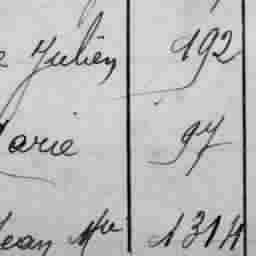 e Julien 192
Marie 97
Jean Mie 1314